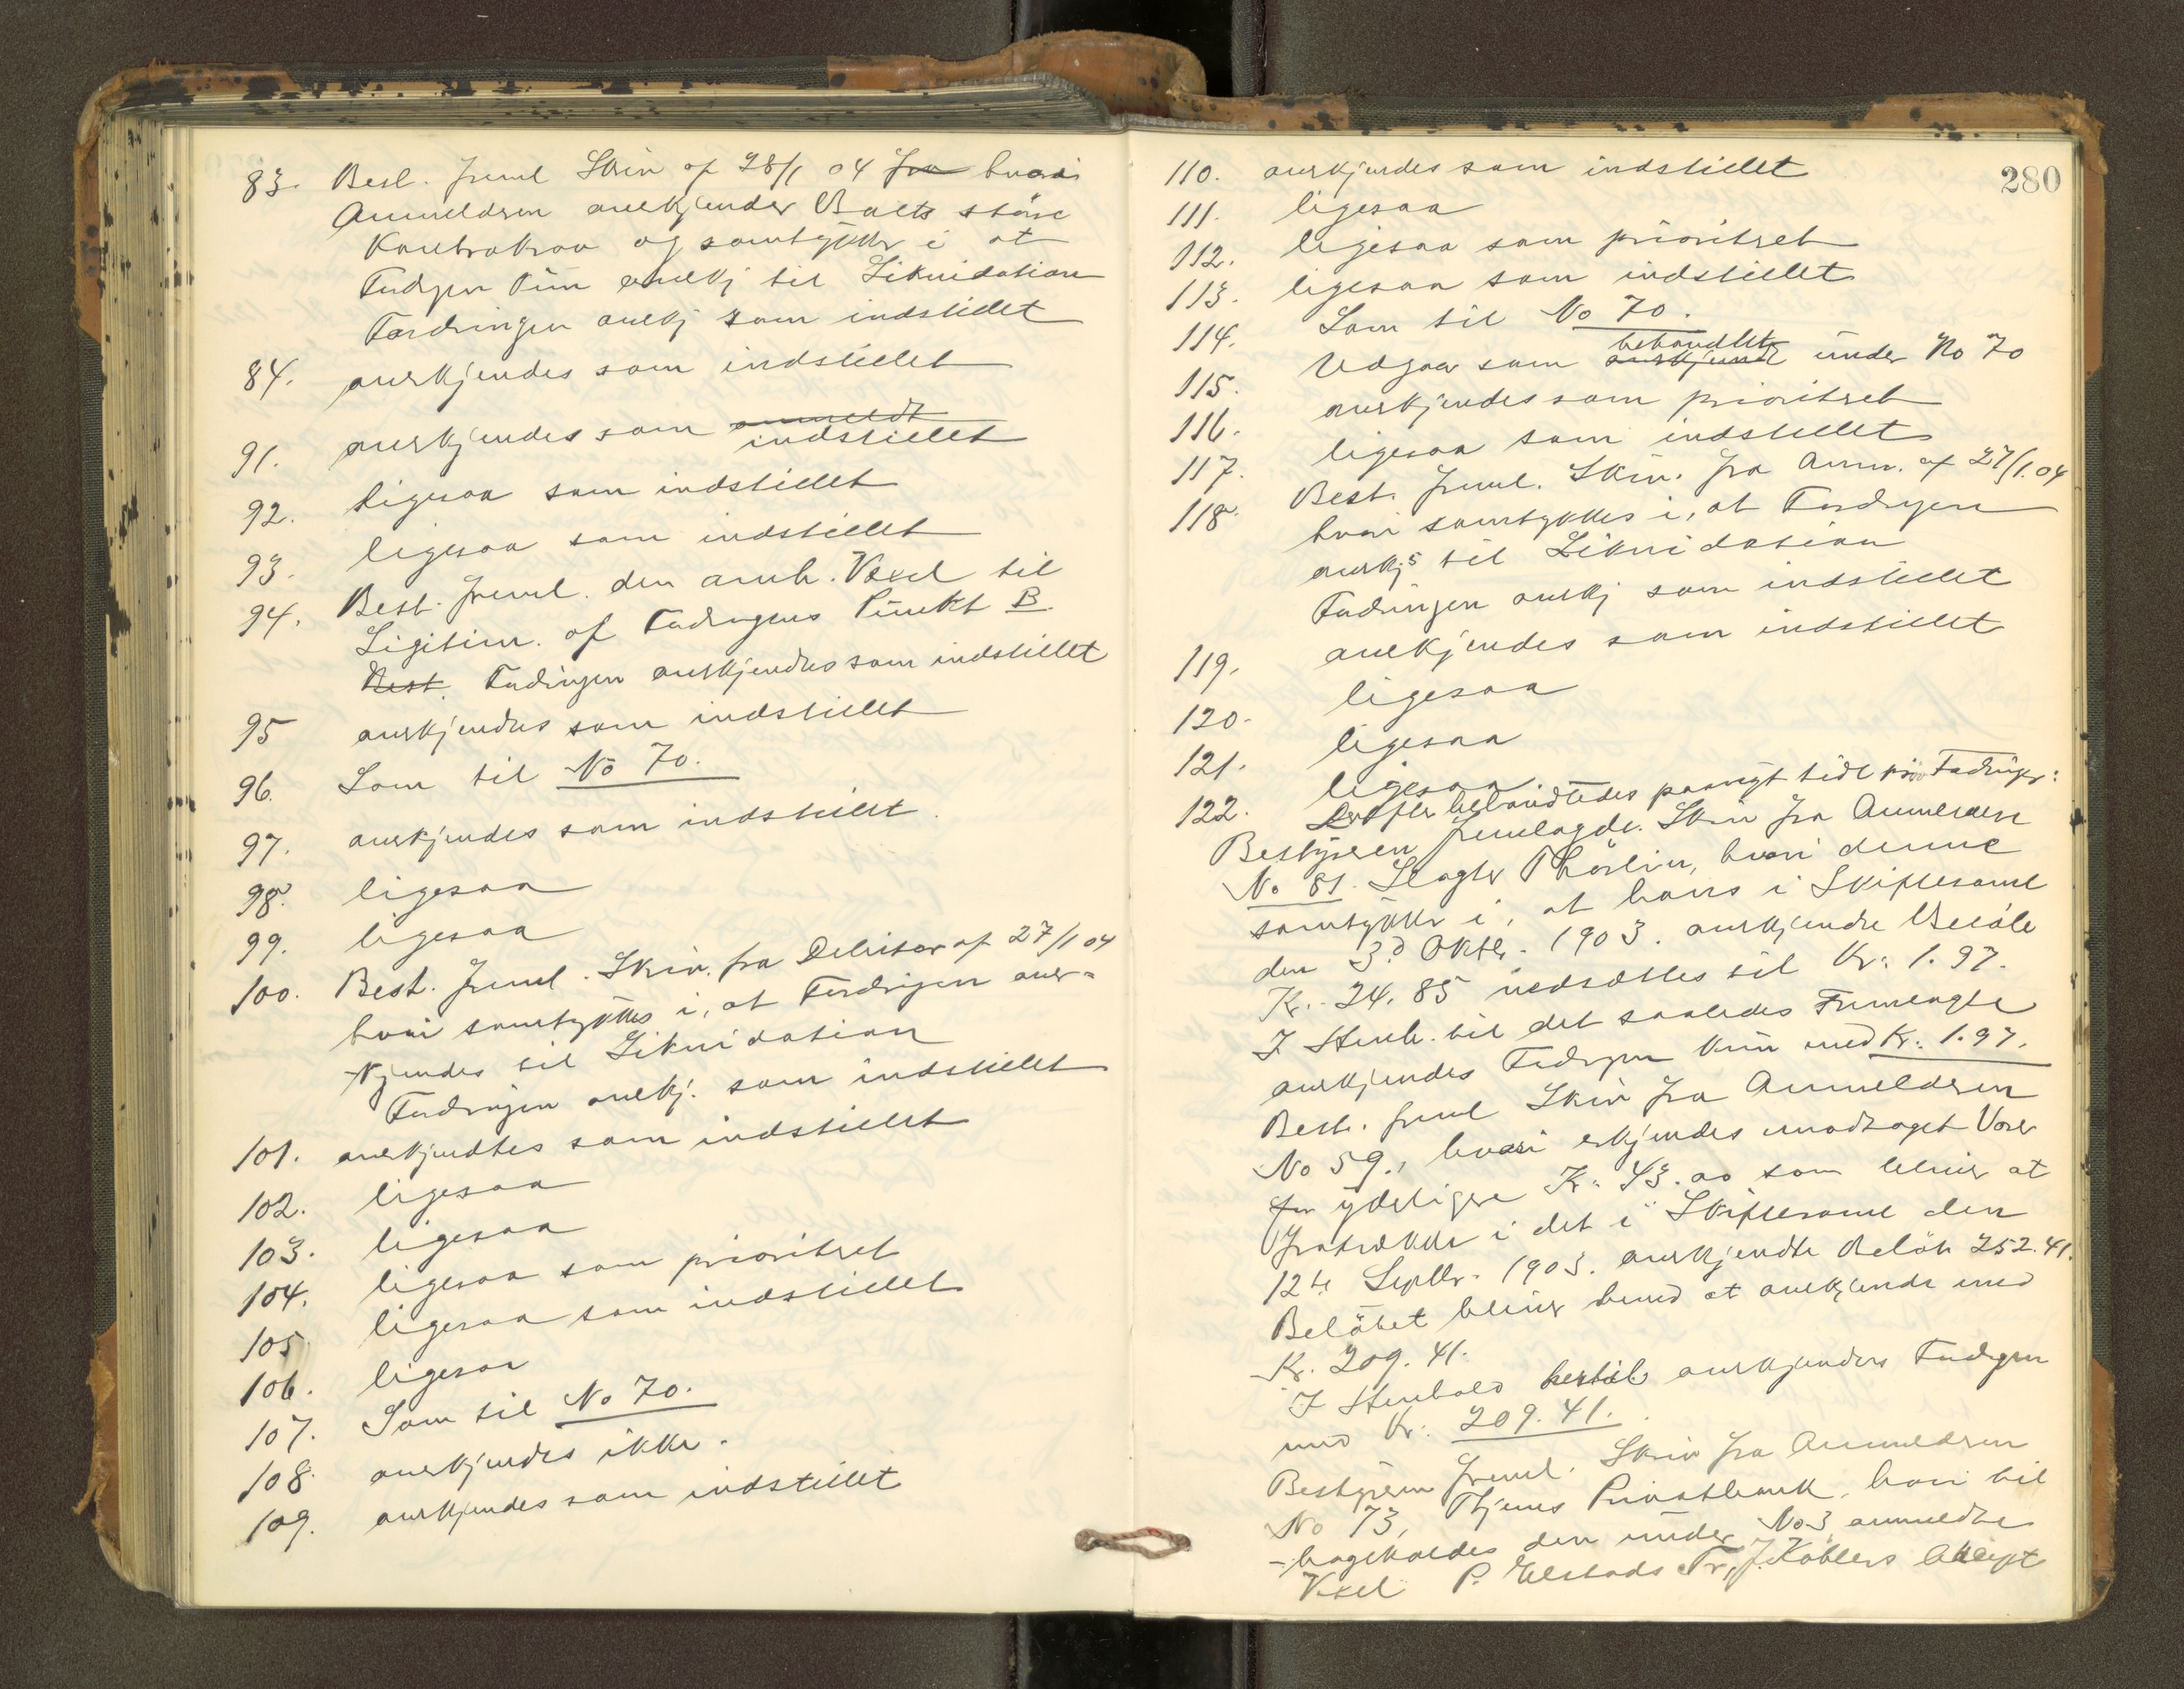 83. Best. freml Skriv af 28/1 04 fra hvori
Anmelderen anerkjender Boets större
Kontrakrav og samtykker i at
Fodrgen kun anerkj til Likvidation
Fordringen anerkj som indstillet
84. anerkjendes som indstillet
91. anerkjendes som anmeldt
indstillet
92. ligesaa som indstillet
93. ligesaa som indstillet
94. Best. freml. den anmh. Vexel til
Ligitim. af Fodrngens Punkt B.
Best. Fodringen anerkjendes som indstillet
95 anerkjendes som indstillet
96. Som til No 70.
97. anerkjendes som indstillet.
98. ligesaa
99. ligesaa
100. Best. freml. Skriv. fra Debitor af 27/1 04
hvori samtykkes i, at Fordringen aner-
kjendes til Likvidation
Fordringen anerkj. som indstillet
101. anerkjendtes som indstillet
102. ligesaa
103. ligesaa
104. ligesaa som prioritret
105. ligesaa som indstillet
106. ligesaa
107. Som til No 70.
108. anerkjendes ikke.
109. anerkjendes som indstillet
280
110. anerkjendes som indstillet
111. ligesaa
112. ligesaa som prioritret
113. ligesaa som indstillet
114. Som til No 70.
115. Udgaar som anerkjendt behandlet under No 70
116. anerkjendes som prioritret
117. ligesaa som indstillet
118. Best. freml. Skriv. fra Anm. af 27/1.04
hvori samtykkes i, at Fordrgen
anerkjs til Likvidation
Fodringen anerkj som indstillet
119. anerkjendes som indstillet
120. ligesaa
121. ligesaa
122. ligesaa
Derefter behandledes paanyt tidl pröv Fodringer:
Bestyreren fremlagde. Skriv fra Anmelderen
No 81. Slagter Thorlin, hvori denne
samtykker i, at hans i Skiftesaml
den 3d Oktbr. 1903. anerkjendte Belöb
Kr. 24.85 nedsættes til Kr: 1.97.
I Henh. til det saaledes Fremlagte
anerkjendes Fodrgen kun med Kr: 1.97.
Best. freml Skriv fra Anmelderen
No 59., hvori erkjendes modtaget Varer
for yderligere Kr: 43.00 som bliver at
fratrække i det i Skiftesaml den
12te Septbr. 1903. anerkjendte Belöb 252.41.
Belöbet bliver hermed at anerkjende med
Kr. 209.41.
I Henhold hertil anerkjendes Fodrgen
med Kr: 209.41.
Bestyreren freml. Skriv fra Anmelderen
No 73, Thjems Privatbank, hvori til-
-bagekaldes den under No 3 anmeldte
Vexel P. Elstads Tr, J. Köhlers Akcept